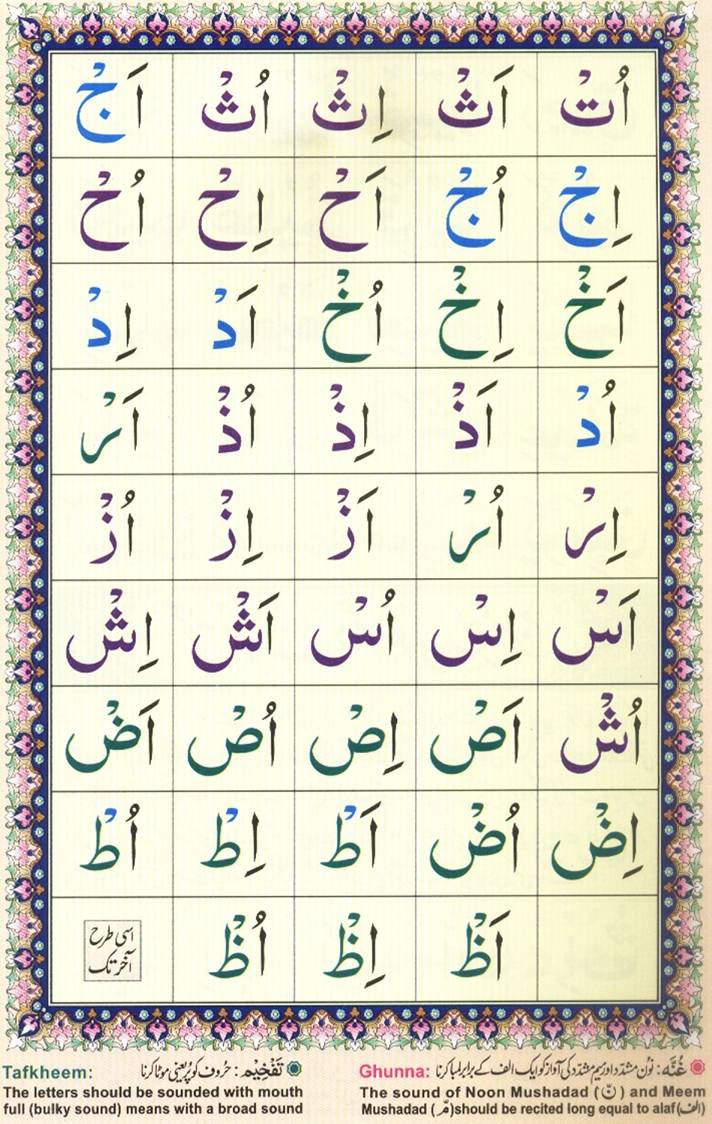 اُتْ اَثْ اِثْ اُثْ اَجْ
اِجْ اُجْ اَحْ اِحْ اُحْ
اَخْ اِخْ اُخْ اَدْ اِدْ
اُدْ اَذْ اِذْ اُذْ اَرْ
اِرْ اُرْ اَزْ اِزْ اُزْ
اَسْ اِسْ اُسْ اَشْ اِشْ
اُشْ اَصْ اِصْ اُصْ اَضْ
اِضْ اُضْ اَطْ اِطْ اُطْ
اَظْ اِظْ اُظْ
اسی طرح
آخر تک
غُنَّہ: نون مشدّد اور میم مشدّد کی آواز کو ایک الف کے برابر لمبا کرنا
Ghunna:
The sound of Noon Mushadad (نّ) and Meem
Mushadad (مّ)should be recited long equal to alaf(الف)
تَفْخِیْم: حُروف کو پُر یعنی موٹا کرنا
Tafkheem:
The letters should be sounded with mouth
full (bulky sound) means with a broad sound